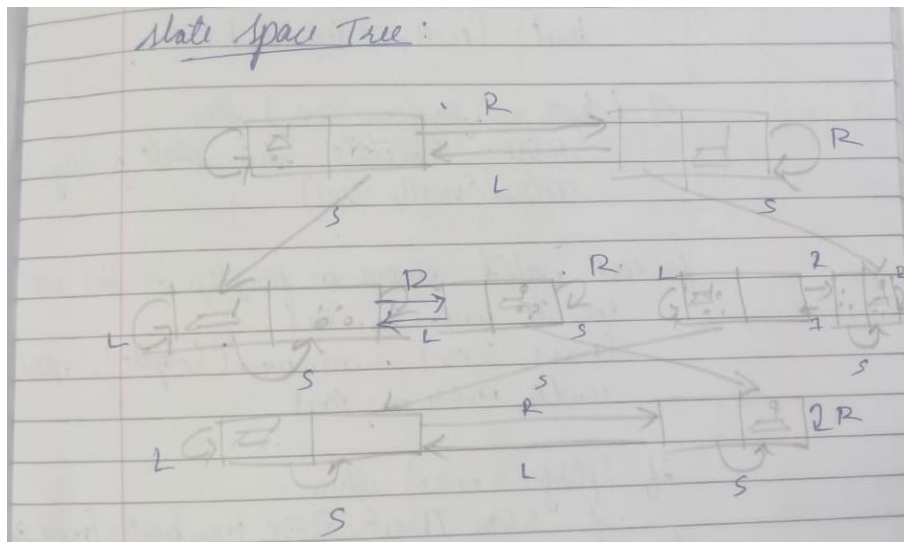 State Space Tree:
R
R
L
S S
L R R L 2 R
L S 7
S S S
R
L 2R
L S
S